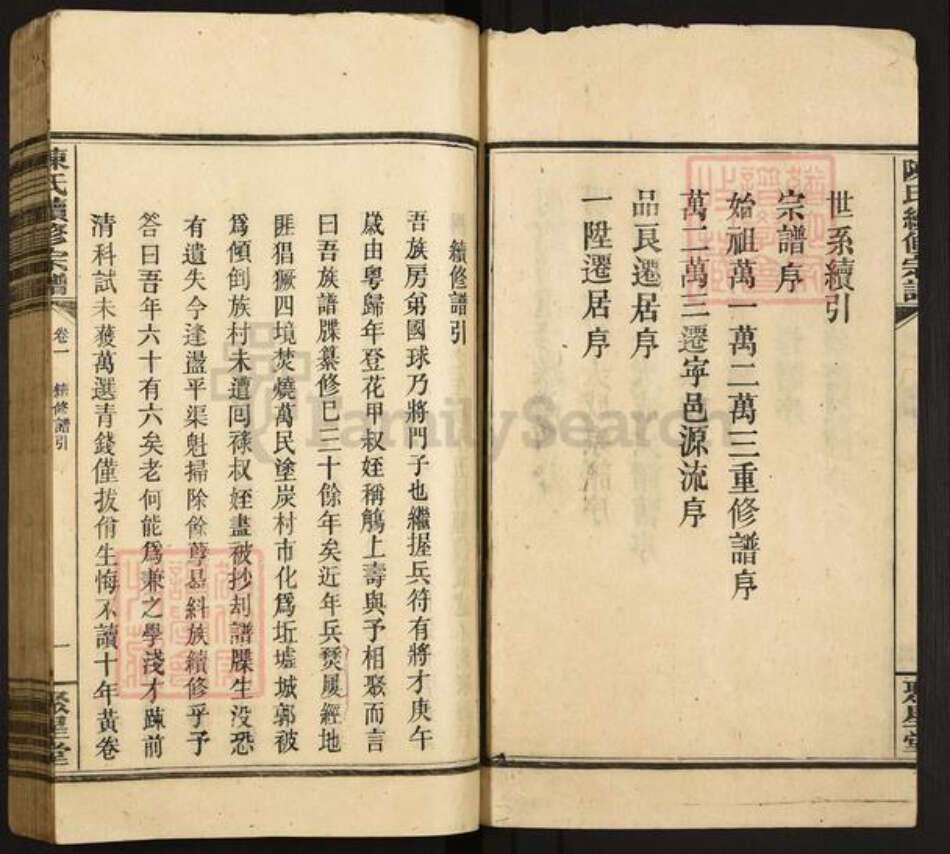 世系續引
宗譜序
始祖萬一萬二萬三重修譜序
萬二萬三遷寜邑源流序
品良遷居序
一陞遷居序
續修譜引
吾族房弟國球乃將門子也繼握兵符有將才庚午
歲由粤歸年登花甲叔姪稱觴上壽與予相聚而言
曰吾族譜牒纂修已三十餘年矣近年兵燹屢經地
匪猖獗四境焚燒萬民塗炭村市化爲坵墟城郭被
爲傾倒族村未遭囘祿叔姪盡被抄刦譜牒生没恐
有遺失今逢盪平渠魁掃除餘孽曷糾族續修乎予
答曰吾年六十有六矣老何能爲兼之學淺才踈前
清科試未蒦萬選青錢僅拔佾生悔不讀十年黃卷
陳氏續修宗譜
卷一
續修譜引
一
聚星堂
陳氏續修宗譜
聚星堂
FamilySearch